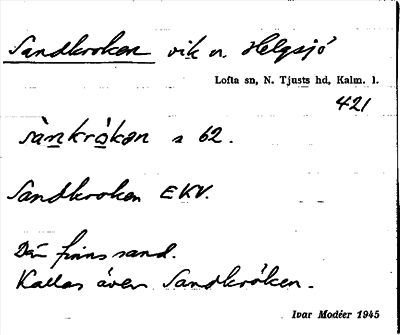 Sandkroken vik n. Helgsjö
Lofta sn, N. Tjusts hd, Kalm. l.
421
sànkròkən s 62.
Sandkroken EKV.
Där finns sand.
Kallas även Sandkröken.
Ivar Modéer 1945